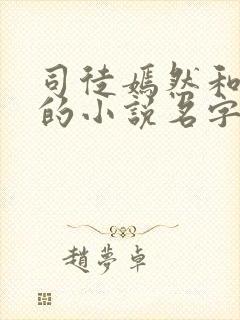 司徒嫣然和
的小說名字
趙夢卓